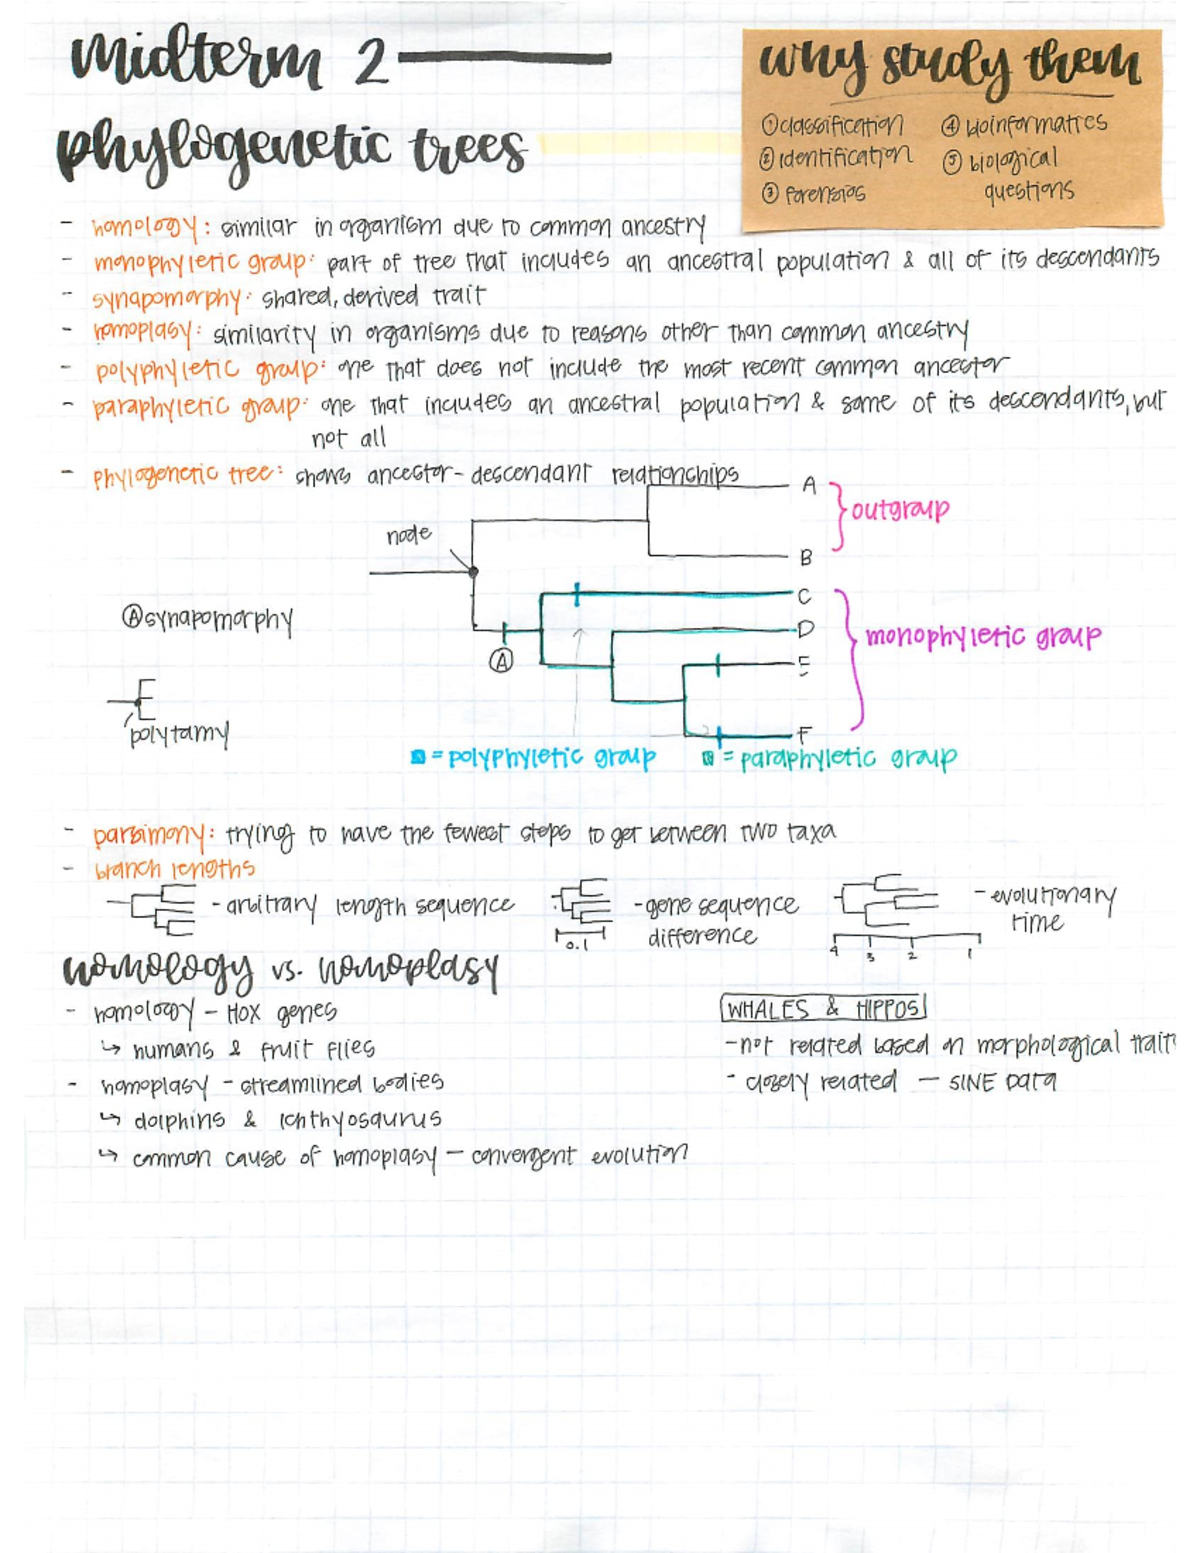 midterm 2
phylogenetic trees
why study them
① classification
② identification
③ forensics
④ bioinformatics
⑤ biological
questions
- homology: similar in organism due to common ancestry
- monophyletic group: part of tree that includes an ancestral population & all of its descendants
- synapomorphy: shared, derived trait
- homoplasy: similarity in organisms due to reasons other than common ancestry
- polyphyletic group: one that does not include the most recent common ancestor
- paraphyletic group: one that includes an ancestral population & some of its descendants, but
not all
- phylogenetic tree: shows ancestor-descendant relationchips
A
outgroup
node
B
C
Ⓐ synapomorphy
D
monophyletic group
Ⓐ
E
polytamy
F
= polyphyletic group
= paraphyletic group
- parsimony: trying to have the fewest steps to get between two taxa
- branch lengths
- arbitrary length sequence
- gene sequence
difference
0.1
- evolutionary
time
4 3 2 1
homology vs. homoplasy
- homology - HOX genes
↳ humans & fruit flies
- homoplasy - streamlined bodies
↳ dolphins & Ichthyosaurus
↳ common cause of homoplasy - convergent evolution
WHALES & HIPPOS
- not related based on morphological trait
- closely related - SINE DATA